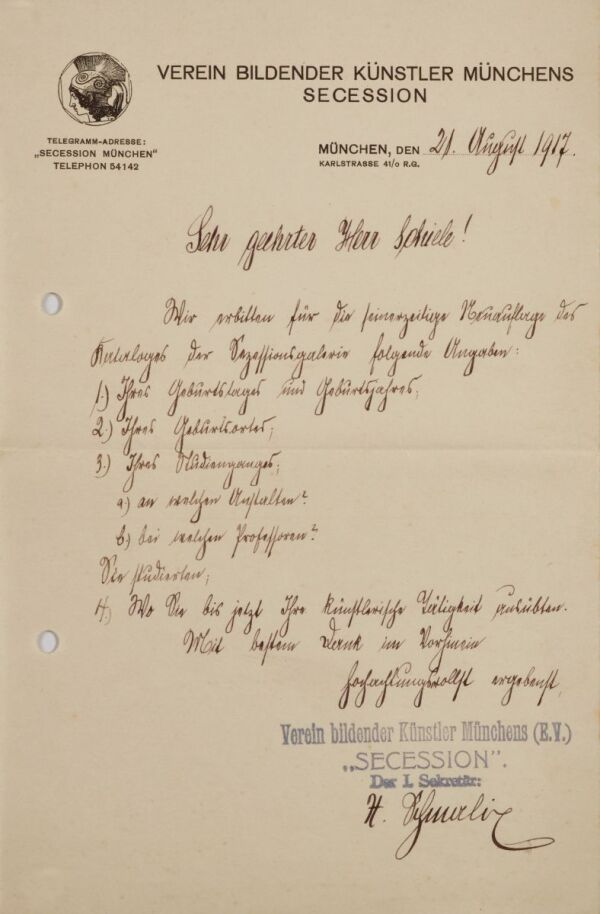 VEREIN BILDENDER KÜNSTLER MÜNCHENS
SECESSION
TELEGRAMM-ADRESSE:
„SECESSION MÜNCHEN"
TELEPHON 54142
MÜNCHEN, DEN 21. August 1917.
KARLSTRASSE 41/0 R.G.
Sehr geehrter Herr Schiele!
Wir erbitten für die seinerzeitige Neuauflage des
Kataloges der Sezessionsgalerie folgende Angaben:
1.) Ihres Geburtstages und Geburtsjahres;
2.) Ihres Geburtsortes;
3.) Ihres Studienganges;
a) an welchen Anstalten?
b) bei welchen Professoren?
Sie studierten;
4.) Wo Sie bis jetzt Ihre künstlerische Tätigkeit ausübten.
Mit bestem Dank im Vorhinein
hochachtungsvollst ergebenst
Verein bildender Künstler Münchens (E.V.)
„SECESSION".
Der I. Sekretär:
H. Schmelix